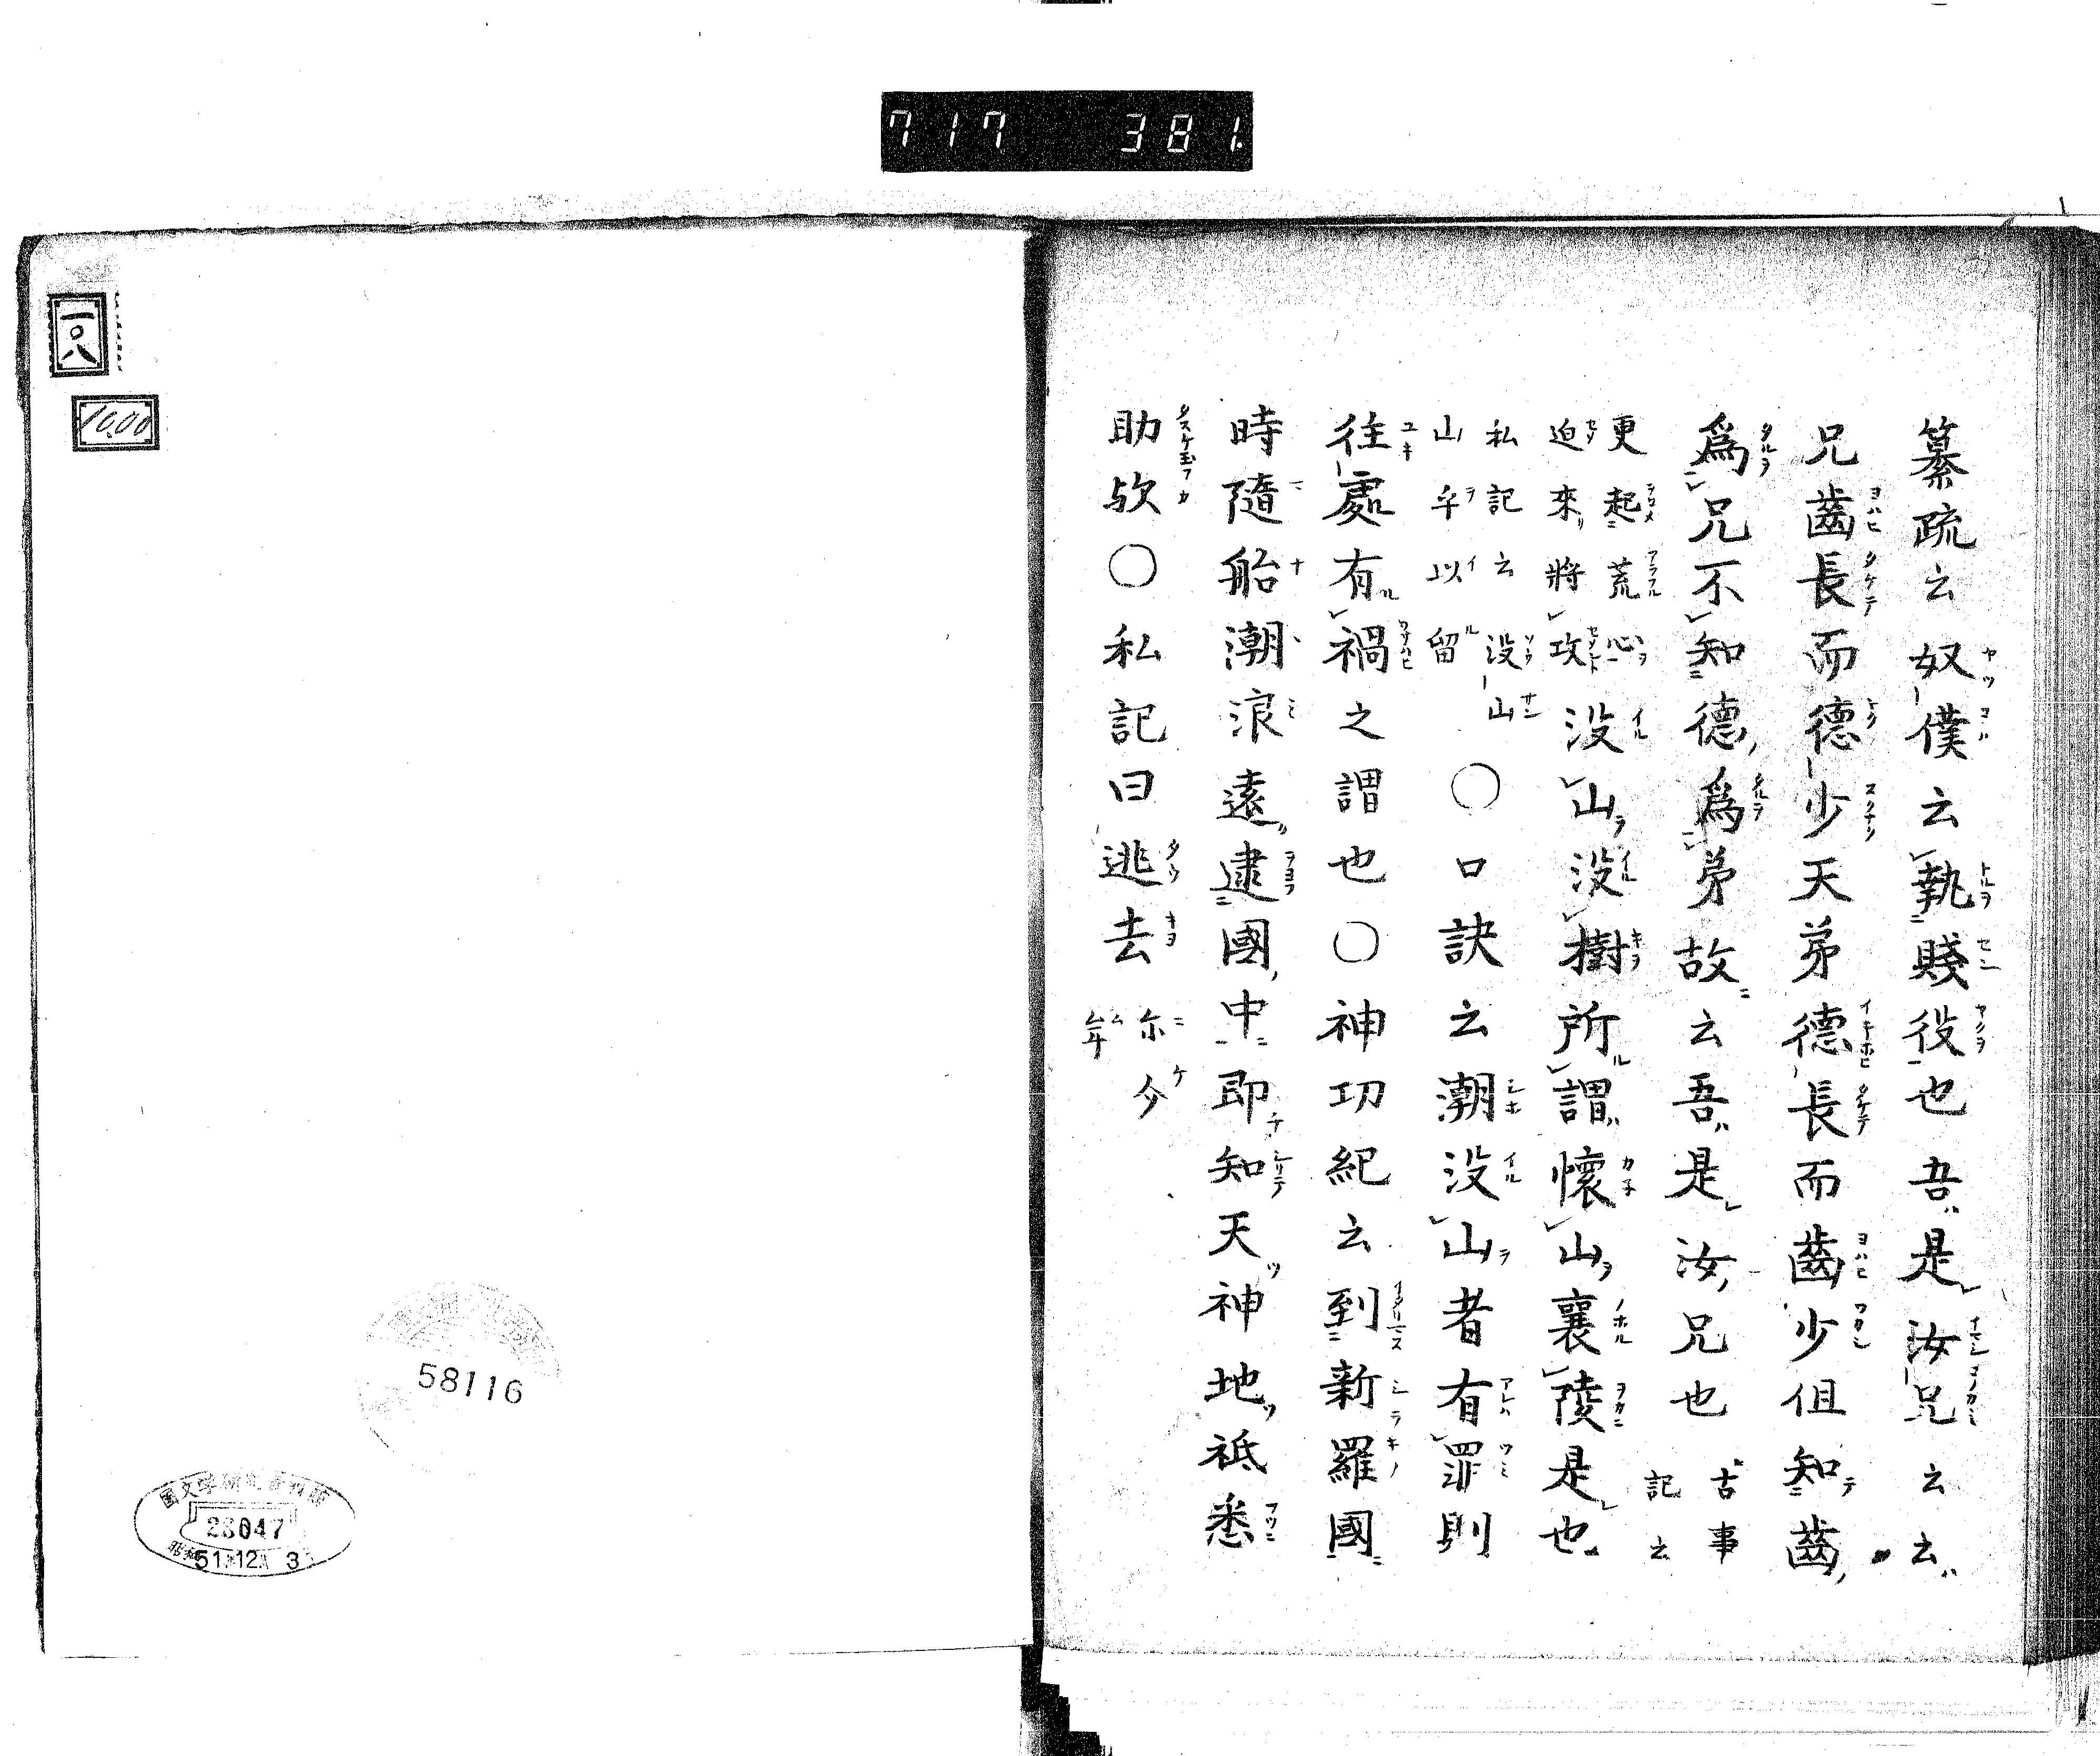 717 381
纂疏云奴僕云執賤役也吾是汝兄云云
兄齒長而德少天弟德長而齒少但知齒
爲兄不知德爲弟故云吾是汝兄也古事記云
更起荒心迫來將攻没山没樹所謂懷山襄陵是也
私記云没山山千以留〇口訣云潮没山者有罪則
往處有禍之謂也〇神功紀云到新羅國
時隨船潮浪遠逮國中即知天神地祇悉
助欤〇私記曰逃去尓介
一〇八
10.00
58116
28047
51.12. 3